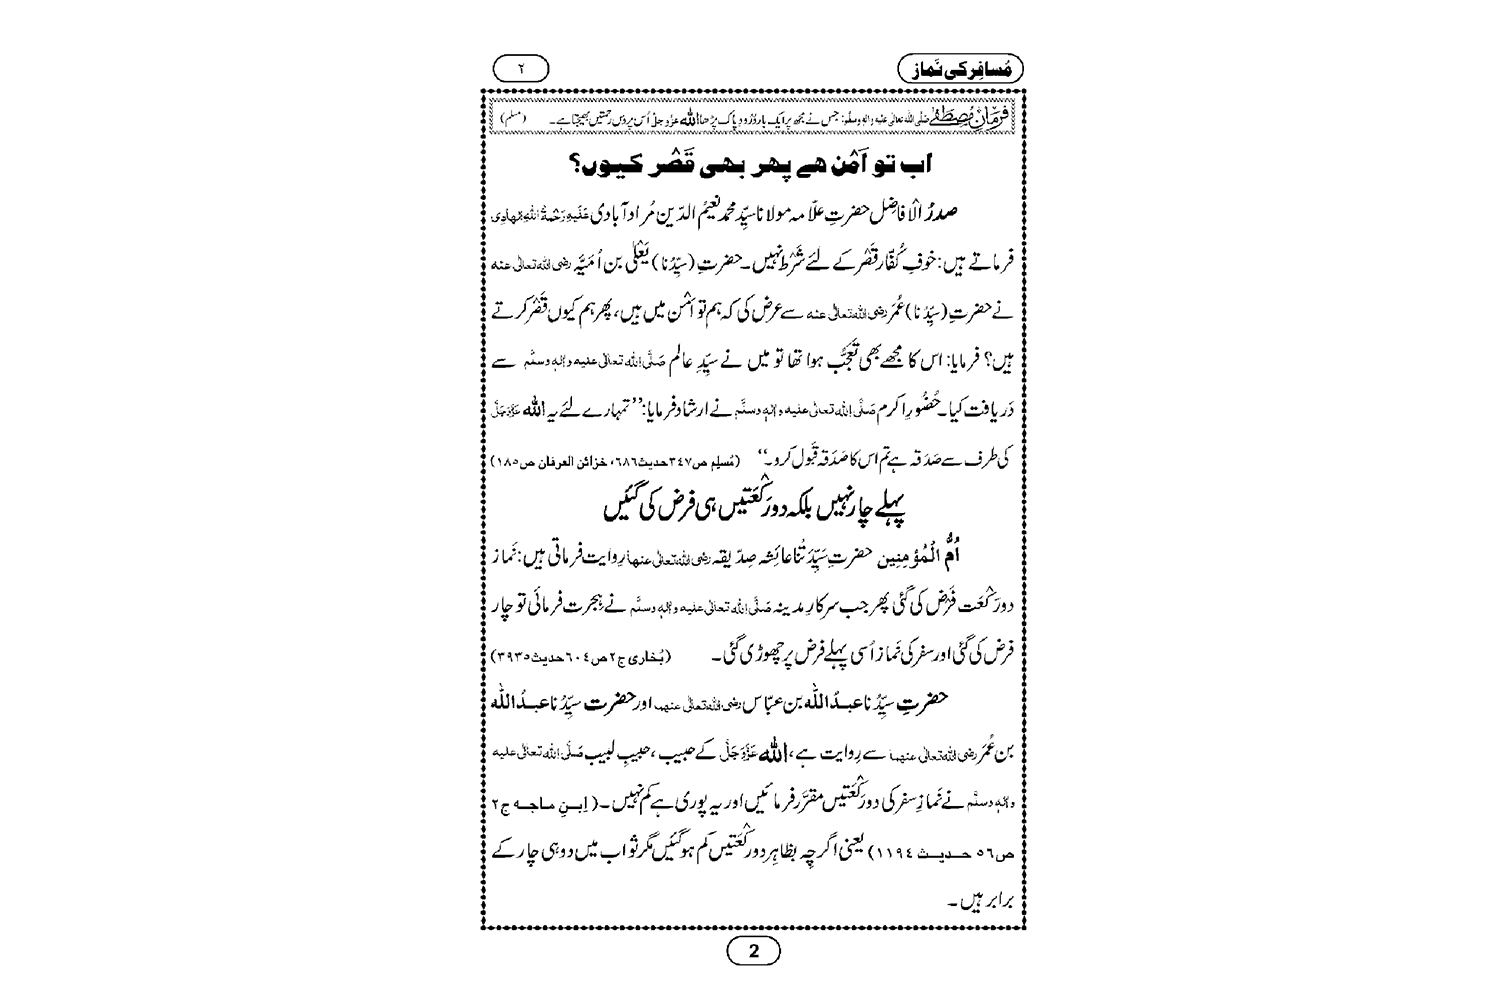 مُسافِر کی نَماز
۲
فرمانِ مُصطَفٰے صَلَّی اللہ تعالٰی علیہ والہٖ وسلَّم: جس نے مجھ پر ایک بار دُرُودِ پاک پڑھا اللہ عَزَّوَجَلَّ اُس پر دس رحمتیں بھیجتا ہے۔ (مسلم)
اب تو اَمْن ھے پھر بھی قَصْر کیوں؟
صدرُ الْافاضِل حضرتِ علّامہ مولانا سیِّد محمد نعیمُ الدّین مُراد آبادی عَلَیْہِ رَحْمَۃُ اللہِ الْھَادِی
فرماتے ہیں: خوفِ کُفّار قَصْر کے لئے شَرْط نہیں۔ حضرتِ (سیِّدُنا) یَعْلٰی بن اُمَیَّہ رضی اللہ تعالٰی عنہ
نے حضرتِ (سیِّدُنا) عُمَر رضی اللہ تعالٰی عنہ سے عرض کی کہ ہم تو اَمْن میں ہیں، پھر ہم کیوں قَصْر کرتے
ہیں؟ فرمایا: اس کا مجھے بھی تَعَجُّب ہوا تھا تو میں نے سیِّدِ عالم صَلَّی اللہ تعالٰی علیہ والہٖ وسلَّم سے
دَریافت کیا۔ حُضُورِ اکرم صَلَّی اللہ تعالٰی علیہ والہٖ وسلَّم نے ارشاد فرمایا: ’’تمہارے لئے یہ اللہ عَزَّوَجَلَّ
کی طرف سے صَدَقہ ہے تم اس کا صَدَقہ قَبول کرو۔‘‘ (مُسلِم ص۳۴۷ حدیث ۶۸۶، خزائن العرفان ص۱۸۵)
پہلے چار نہیں بلکہ دو رَکْعَتیں ہی فرض کی گئیں
اُمُّ الْمُؤمِنِین حضرتِ سَیِّدَتُنا عائِشہ صِدّیقہ رضی اللہ تعالٰی عنہا رِوایت فرماتی ہیں: نَماز
دو رَکْعَت فَرْض کی گئی پھر جب سرکارِ مدینہ صَلَّی اللہ تعالٰی علیہ والہٖ وسلَّم نے ہِجرت فرمائی تو چار
فرض کی گئی اور سفر کی نَماز اُسی پہلے فرض پر چھوڑی گئی۔ (بُخاری ج۲ ص۶۰٤ حدیث ۳۹۳۵)
حضرتِ سیِّدُنا عبدُ اللّٰہ بن عبّاس رضی اللہ تعالٰی عنہما اور حضرت سیِّدُنا عبدُ اللّٰہ
بن عُمَر رضی اللہ تعالٰی عنہما سے رِوایت ہے، اللہ عَزَّوَجَلَّ کے حبیب، حبیبِ لبیب صَلَّی اللہ تعالٰی علیہ
والہٖ وسلَّم نے نَمازِ سفر کی دو رَکْعَتیں مقرَّر فرمائیں اور یہ پوری ہے کم نہیں۔ (اِبنِ ماجہ ج۲
ص۵۶ حدیث ۱۱۹٤) یعنی اگرچِہ بظاہِر دو رَکْعَتیں کم ہو گئیں مگر ثواب میں دو ہی چار کے
برابر ہیں۔
2